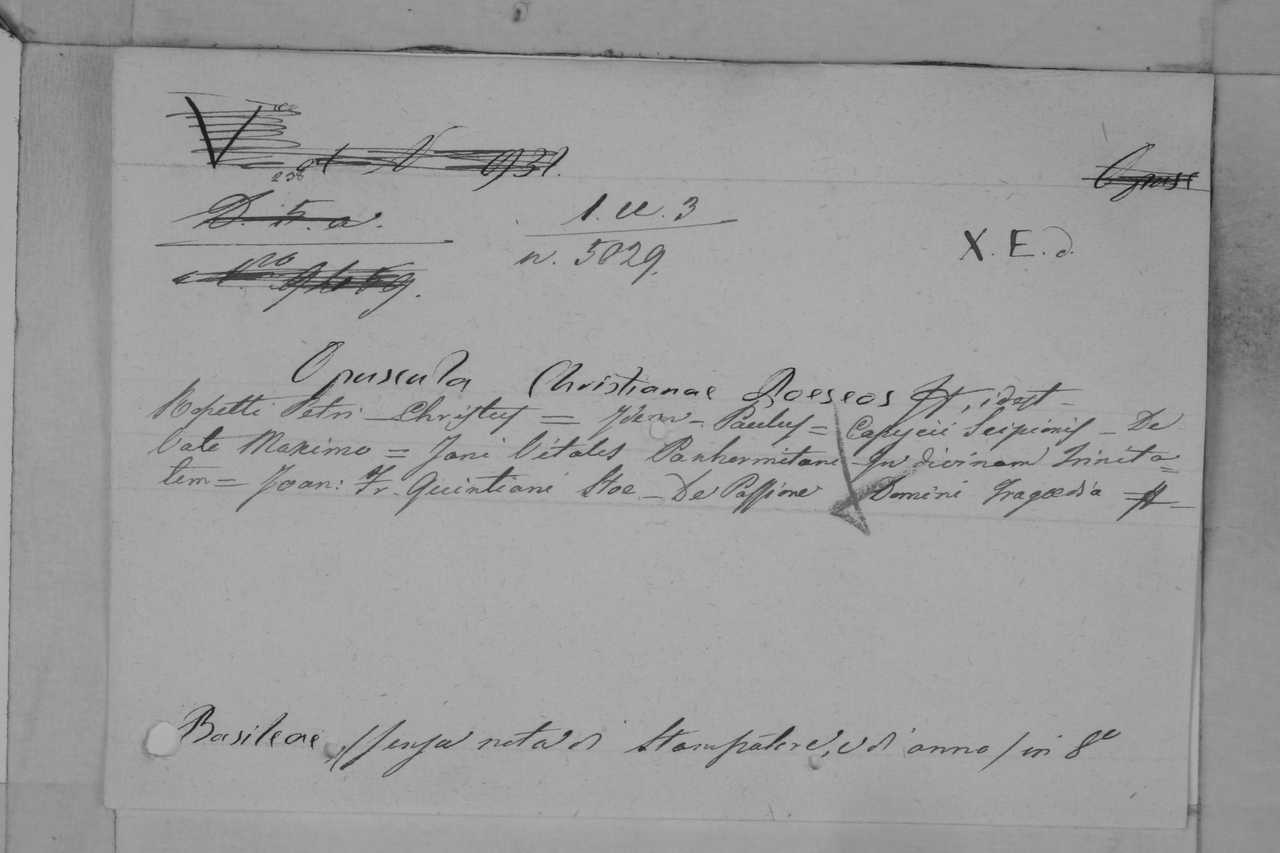 V
Opusc
D. 5. a.
1. cc. 3
n. 5029.
X. E. d.
Opuscula Christianae Poeseos #, idest
Rosetti Petri - Christus = Idem - Paulus = Capycii Scipionis - De
Vate Maximo = Jani Vitalis Panhermitani In divinam Trinita=
tem = Joan: Fr. Quintiani Stoe - De Passione Domini Tragoedia #
Basileae, / senza nota di Stampatore, e di anno / in 8°